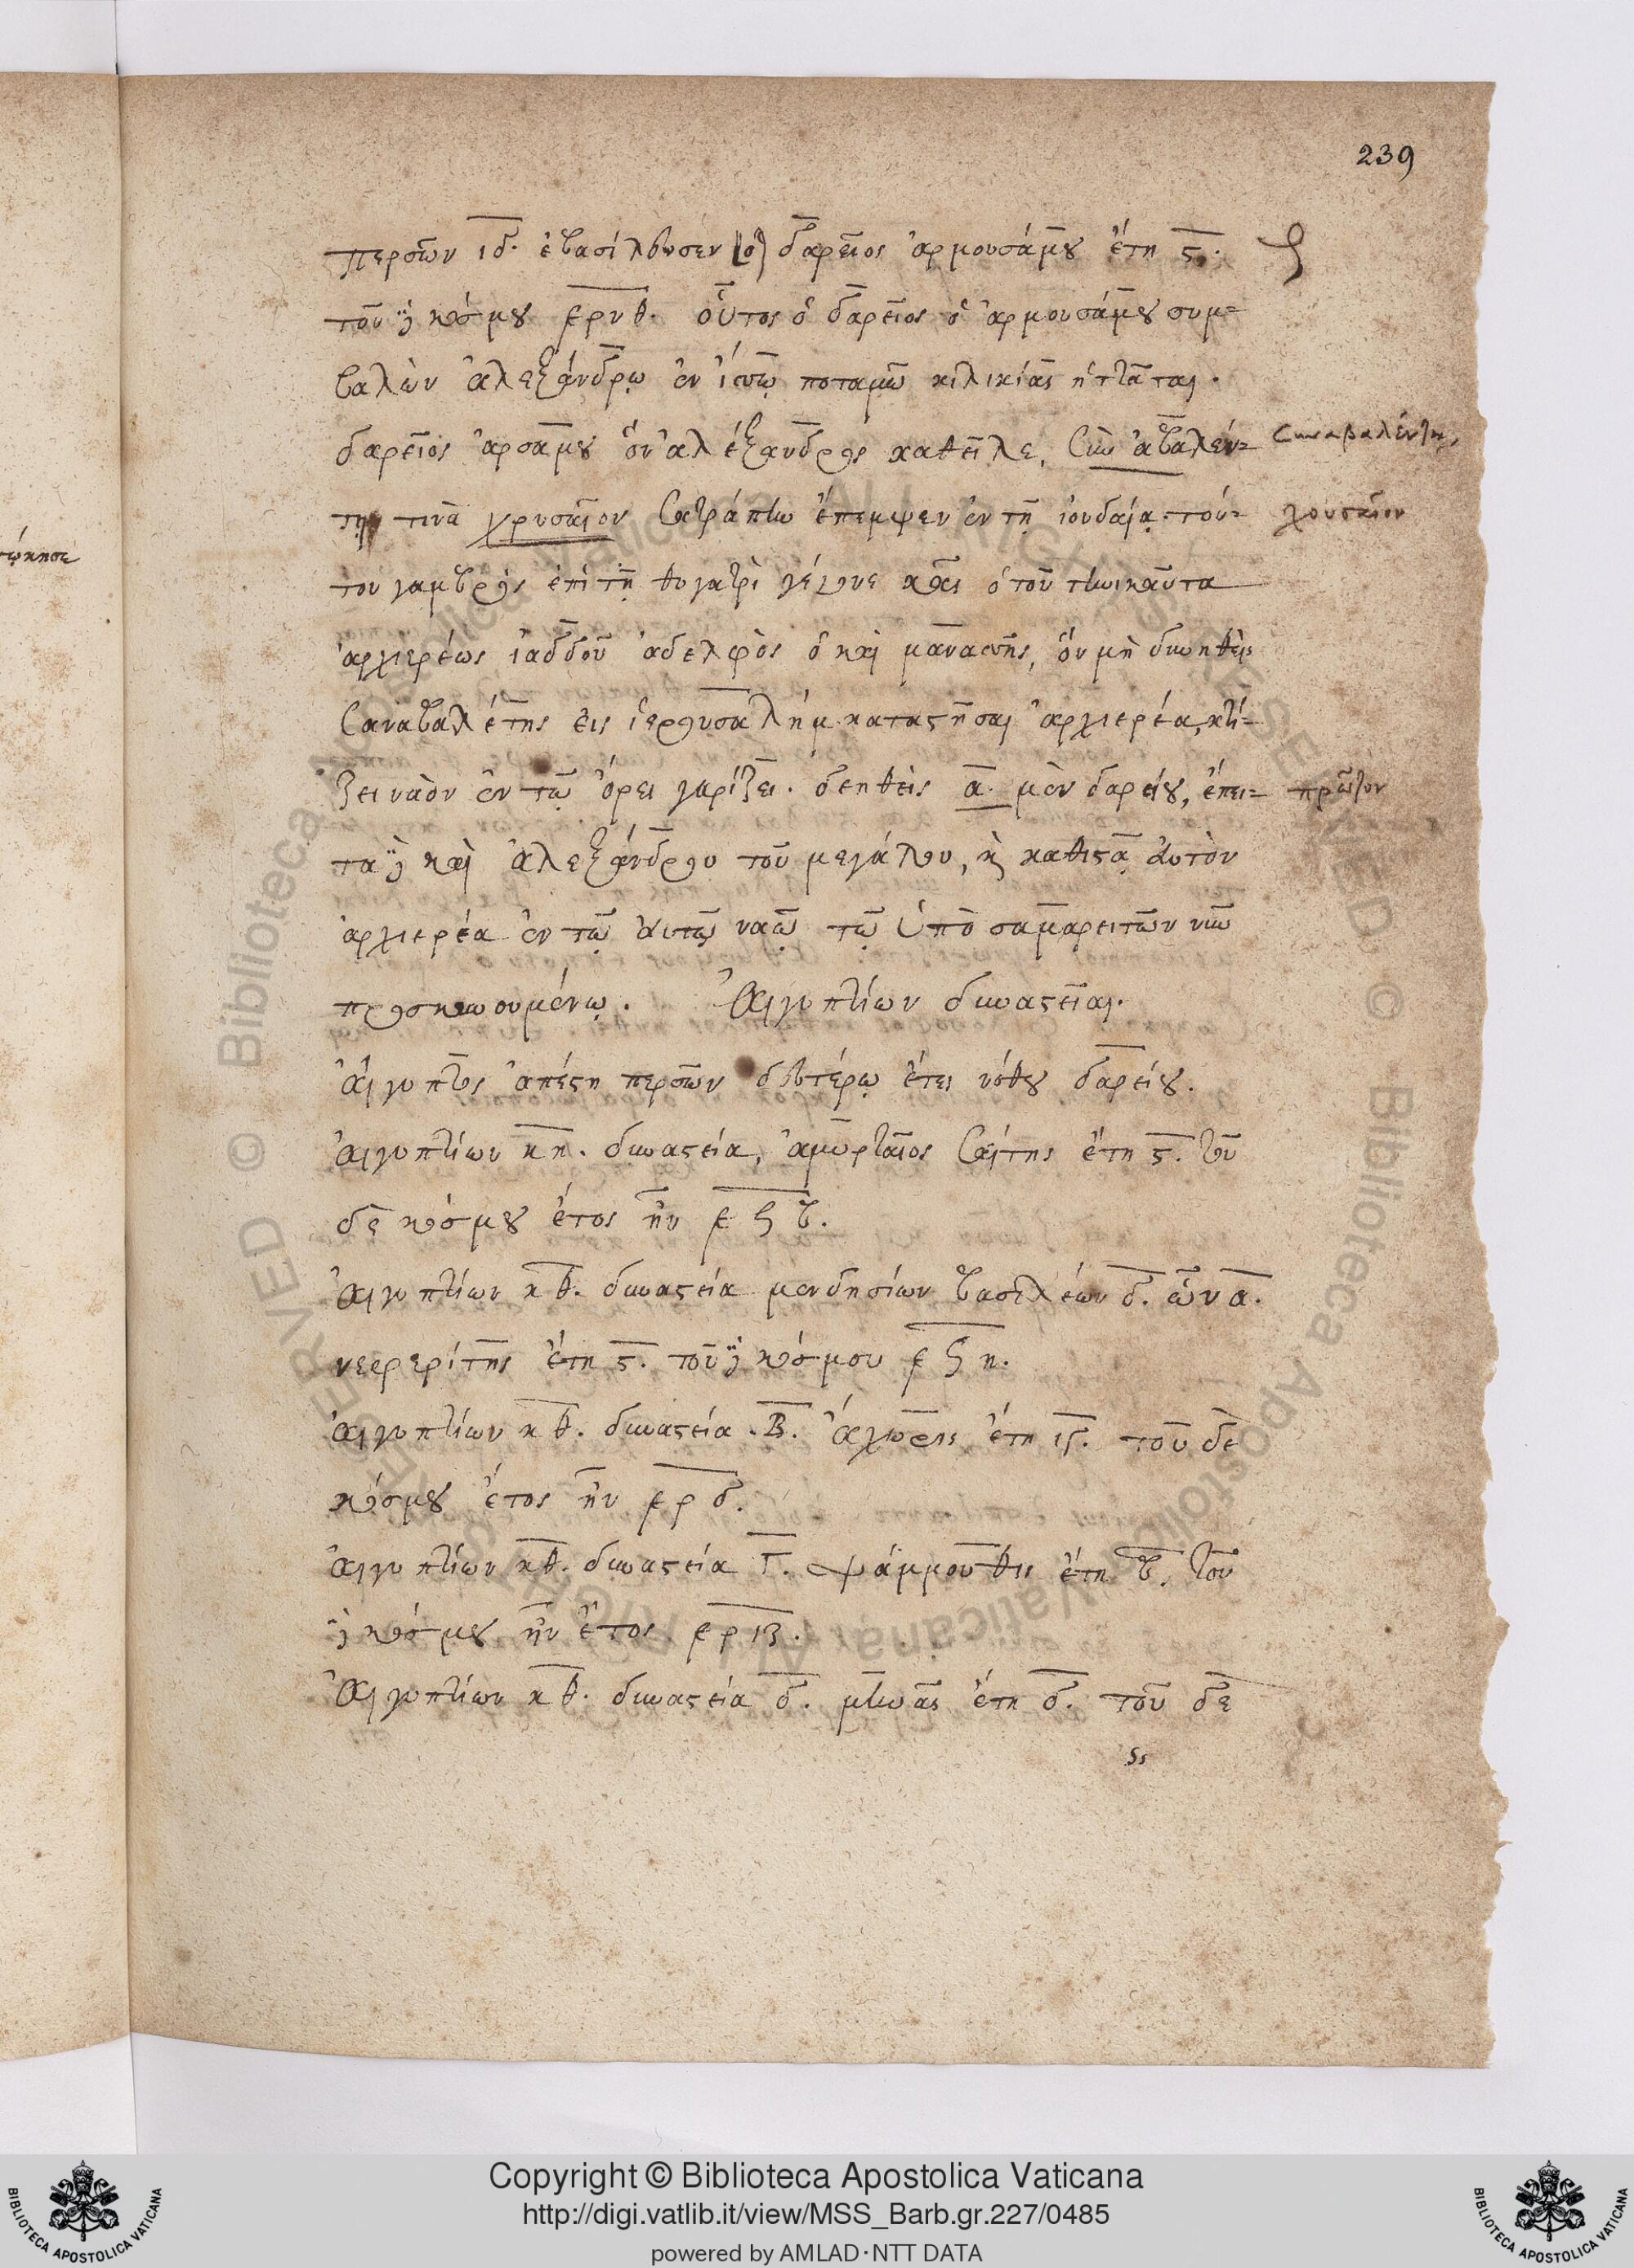 239
περσῶν ιδ. ἐβασίλευσεν [ὁ] δαρεῖος ἀρμουσάμου ἔτη ς.
τοῦ δὲ κόσμου ερνθ. οὗτος ὁ δαρεῖος ὁ ἀρμουσάμου συμ=
βαλὼν ἀλεξάνδρῳ ἐν ἰσσῷ ποταμῷ κιλικίας ἡττᾶται.
δαρεῖος ἀρσάμου ὃν ἀλέξανδρος καθεῖλε, Συναβαλέν= Σαναβαλέντην,
την τινὰ χρυσαῖον Σατράπην ἔπεμψεν ἐν τῇ ἰουδαίᾳ. τού= χουσαῖον
του γαμβρὸς ἐπὶ τῇ θυγατρὶ γέγονε καὶ ὁ τοῦ τηνικαῦτα
ἀρχιερέως ἰαδδοῦ ἀδελφὸς ὁ καὶ μανασσῆς, ὃν μὴ δυνηθεὶς
Σαναβαλέτης εἰς ἱερουσαλὴμ καταστῆσαι ἀρχιερέα, κτί=
ζει ναὸν ἐν τῷ ὄρει γαρίζει. δεηθεὶς α. μὲν δαρείου, ἔπει= πρῶτον
τα δὲ καὶ ἀλεξάνδρου τοῦ μεγάλου, καὶ καθιστᾷ αὐτὸν
ἀρχιερέα ἐν τῷ αὐτῷ ναῷ τῷ ὑπὸ σαμαρειτῶν νῦν
προσκυνουμένῳ. Αἰγυπτίων δυναστεῖαι.
Αἴγυπτος ἀπέστη περσῶν δευτέρῳ ἔτει νόθου δαρείου.
Αἰγυπτίων κη. δυναστεία, ἀμυρταῖος Σαίτης ἔτη ς. τοῦ
δὲ κόσμου ἔτος ἦν ε ϟ β.
Αἰγυπτίων κθ. δυναστεία μενδησίων βασιλέων δ. ὧν α.
νεφερίτης ἔτη ς. τοῦ δὲ κόσμου ε ϟ η.
Αἰγυπτίων κθ. δυναστεία. Β. ἄχωρις ἔτη ιγ. τοῦ δὲ
κόσμου ἔτος ἦν ερδ.
Αἰγυπτίων κθ. δυναστεία Γ. ψάμμουθις ἔτη β. τοῦ
δὲ κόσμου ἦν ἔτος. ερι .
Αἰγυπτίων κθ. δυναστεία δ. μηνᾶς ἔτη δ. τοῦ δὲ
Copyright © Biblioteca Apostolica Vaticana
http://digi.vatlib.it/view/MSS_Barb.gr.227/0485
powered by AMLAD·NTT DATA
BIBLIOTECA APOSTOLICA VATICANA
BIBLIOTECA APOSTOLICA VATICANA